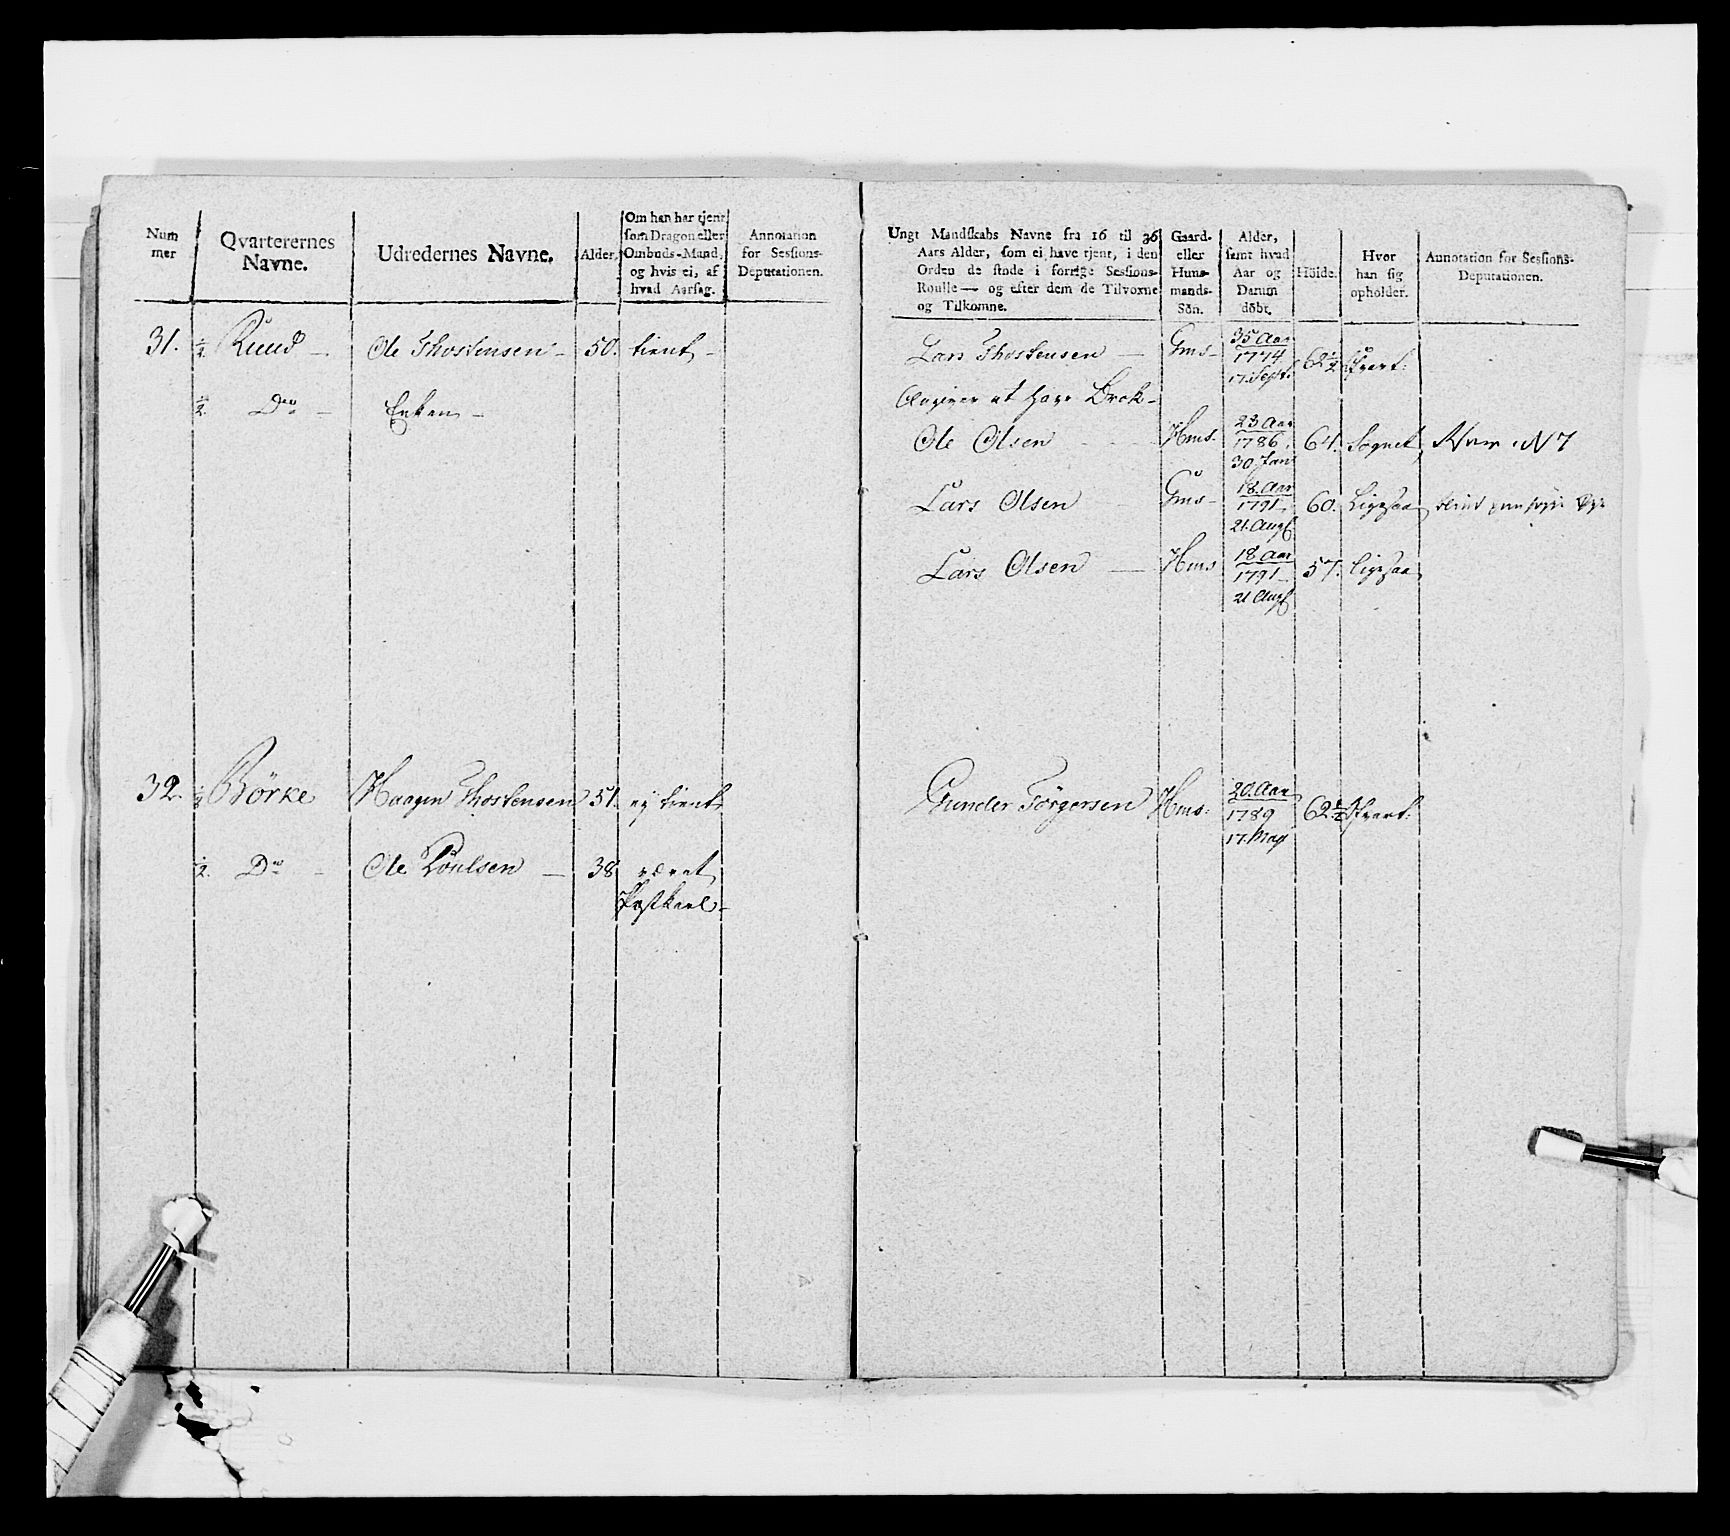 Num
mer
Qvarterernes
Navne.
Udredernes Navne.
Alder.
Om han har tjent
som Dragon eller
Ombuds-Mand,
og hvis ei, af
hvad Aarsag.
Annotation
for Sessions-
Deputationen.
31. 1/2 Ruud - Ole Thostensen - 50. tient -
1/2. Do - Enken -
32. 1/2 Börke Haagen Thostensen 51. ey tient.
1/2. Do - Ole Poulsen - 38 været
Postkarl -
Ungt Mandskabs Navne fra 16 til 36
Aars Alder, som ei have tjent, i den
Orden de stode i forrige Sessions-
Roulle — og efter dem de Tilvoxne
og Tilkomne.
Gaard-
eller
Huus-
mands-
Sön.
Alder,
samt hvad
Aar og
Datum
döbt.
Höide.
Hvor
han sig
opholder.
Annotation for Sessions-
Deputationen.
Lars Thostensen — Gms - 35 Aar
1774
17. Sept. 62 1/2 Qvart:
Angiver at have Brok -
Ole Olsen Hms - 23 Aar
1786.
30 Jan 64. Sognet N 7
Lars Olsen Gms - 18. Aar
1791
21. Aug 60. Ligesaa blind
Lars Olsen — Hms 18 Aar
1791
21 Aug 57. ligesaa
Gunder Törgersen Hms: 20. Aar
1789
17. May 62 1/2 Qvart: